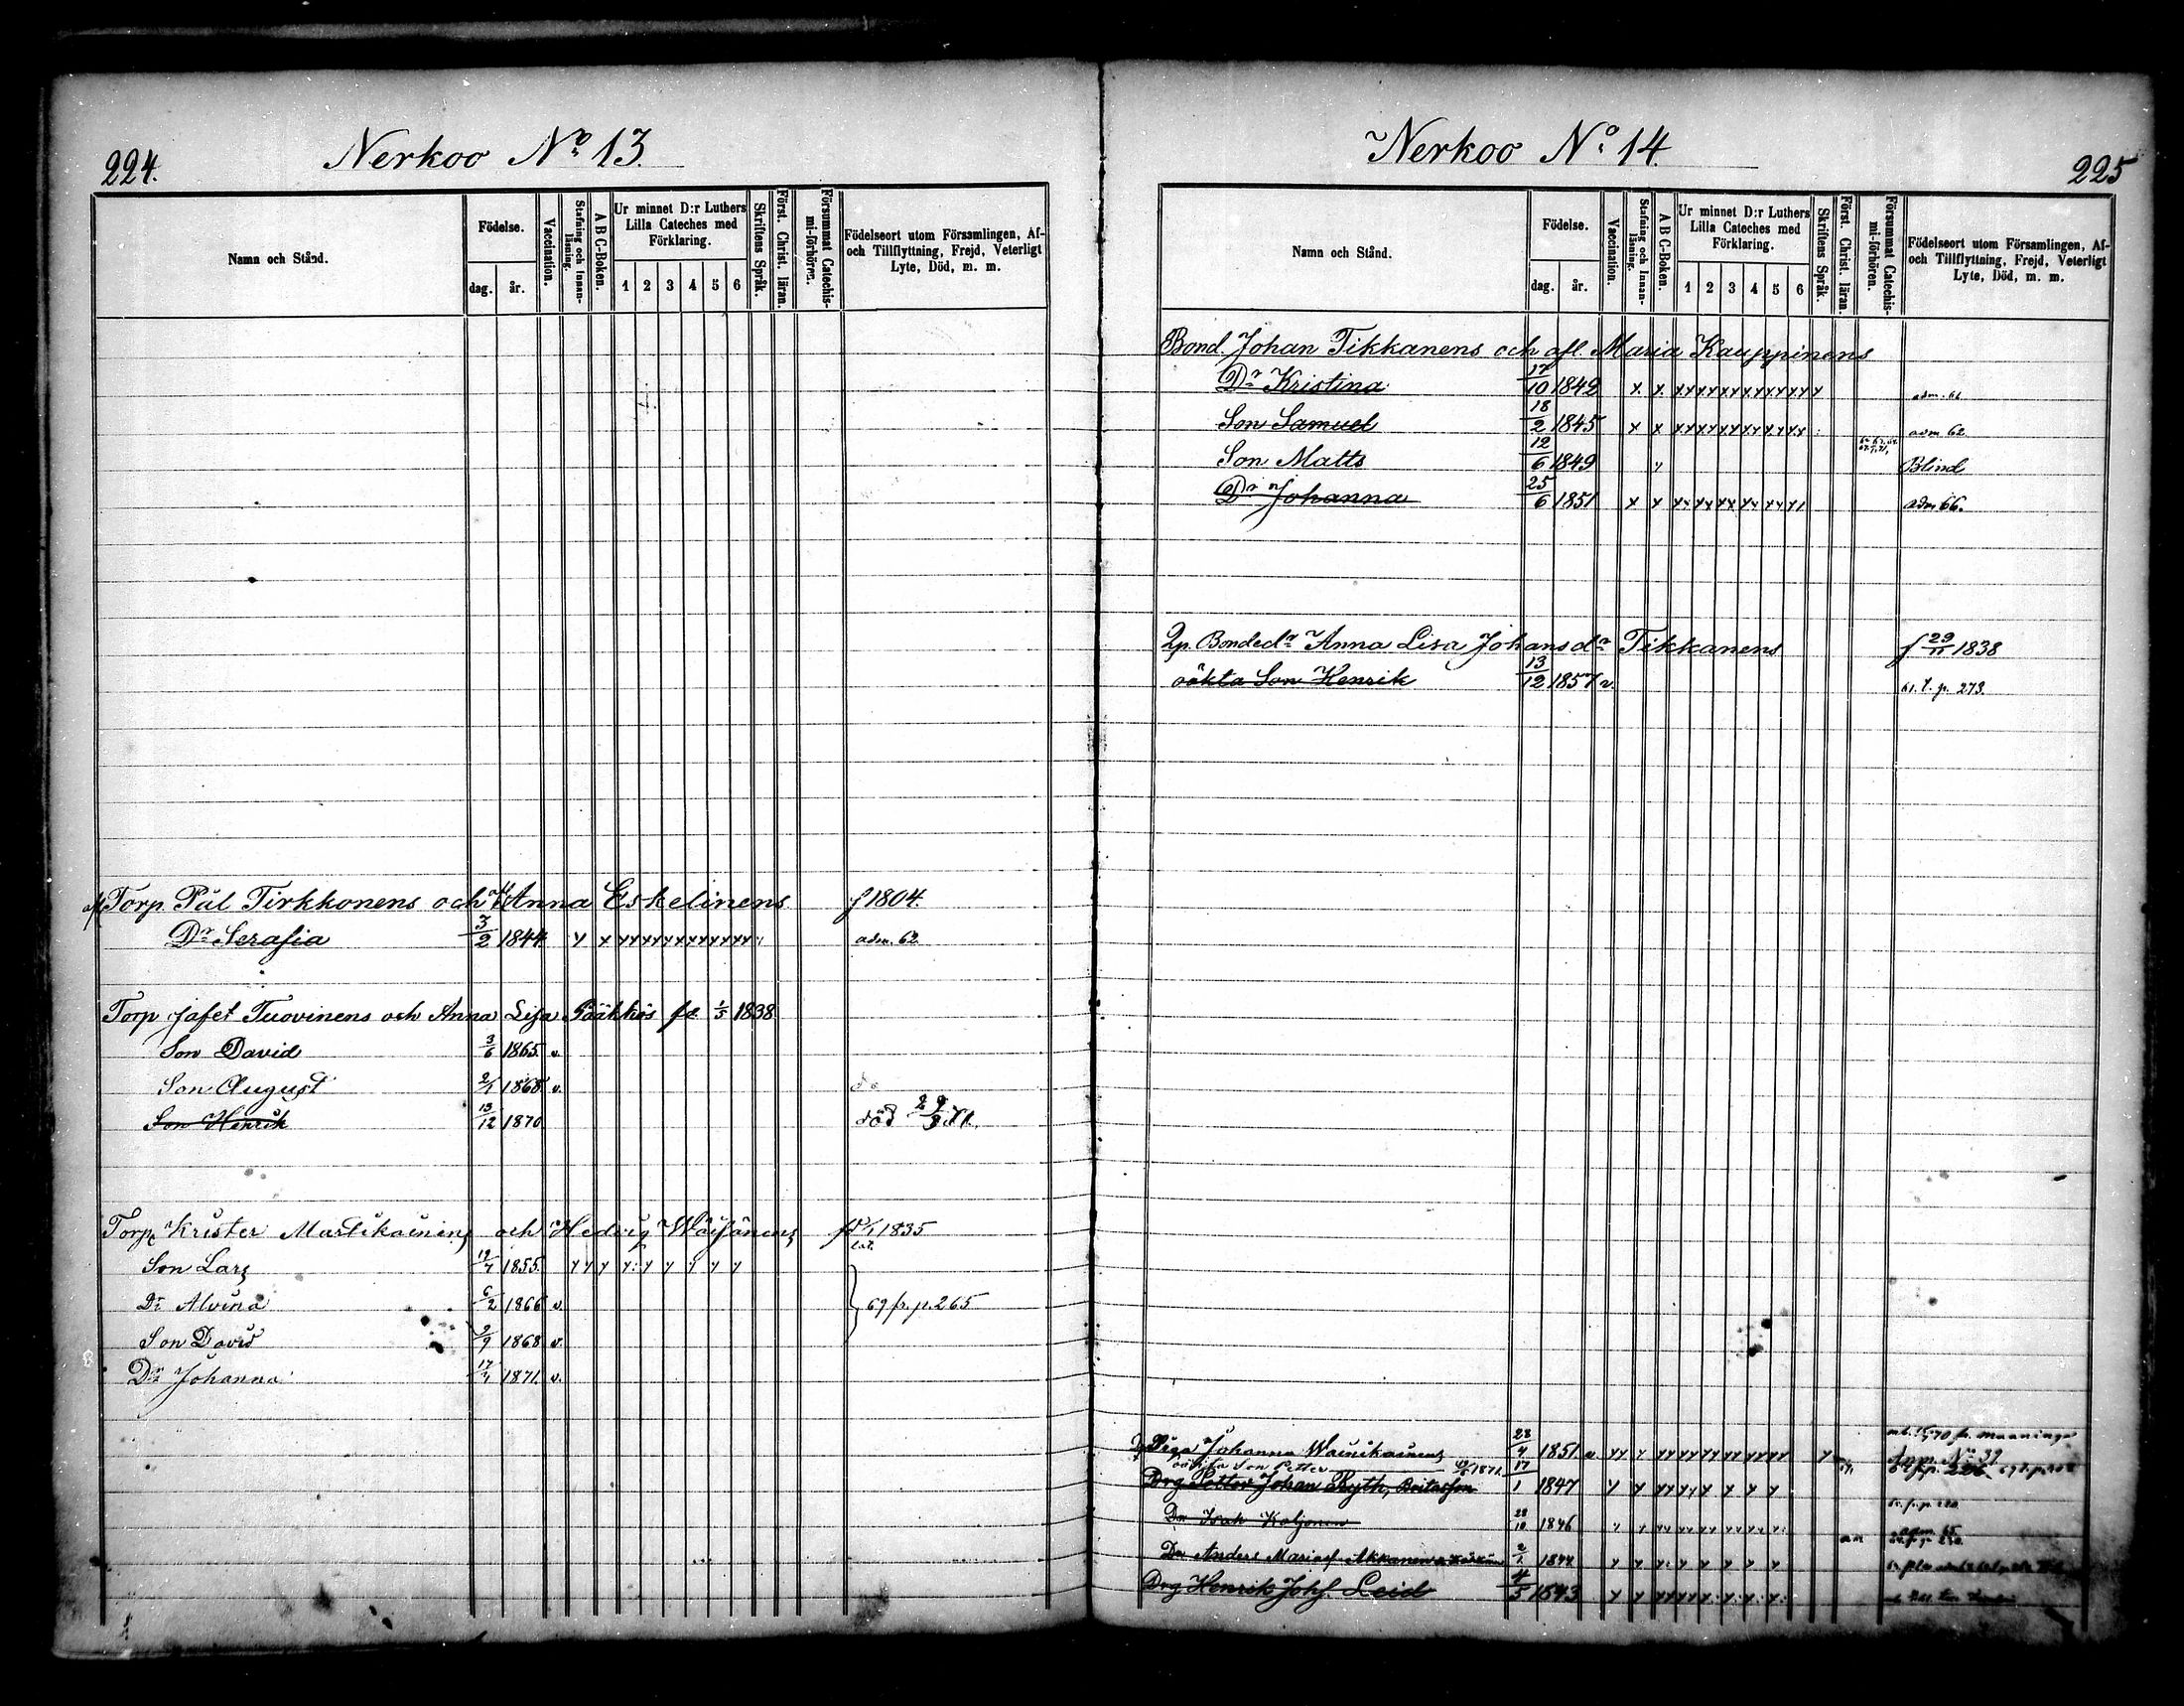 224.
Nerkoo No 13.
Namn och Stånd.
Födelse.
dag. år.
Vaccination.
Stafning och Innan-läsning.
A B C-Boken.
Ur minnet D:r Luthers Lilla Cateches med Förklaring.
1 2 3 4 5 6
Skriftens Språk.
Först. Christ. läran.
Försummat Catechis-mi-förhören.
Födelseort utom Församlingen, Af- och Tillflyttning, Frejd, Veterligt Lyte, Död, m. m.
Torp. Pål Tirkkonens och afl Anna Eskelinens f 1804.
Dr Serafia 3/2 1844 adm. 62
Torp Jafet Tuovinens och Anna Lisa Pääkkös fd. 1/5 1838
Son David 3/6 1865 v.
Son August 1868 v.
Son Henrik 13/12 1870 död 71.
Torp Krister Martikainens och Hedvig Wäisänens 1835
Son Lars 1855.
Dr Alvina 6/2 1866 v. 69 fr. p. 265
Son David 1868 v.
Dr Johanna 1871 v.
Nerkoo No 14.
225
Namn och Stånd.
Födelse.
dag. år.
Vaccination.
Stafning och Innan-läsning.
A B C-Boken.
Ur minnet D:r Luthers Lilla Cateches med Förklaring.
1 2 3 4 5 6
Skriftens Språk.
Först. Christ. läran.
Försummat Catechis-mi-förhören.
Födelseort utom Församlingen, Af- och Tillflyttning, Frejd, Veterligt Lyte, Död, m. m.
Bond. Johan Tikkanens och afl. Maria Kauppinens
Dr Kristina 17/10 1842 adm. 61
Son Samuel 18/2 1845 adm 62
Son Matts 12/6 1849 Blind
Dr Johanna 25/6 1851 adm 66.
Bondedr Anna Lisa Johansdr Tikkanens f 29/11 1838
oäkta Son Henrik 13/12 1857 v. 61. t. p. 273.
Piga Johanna Wainikainens 1851 fr. Maaninga
oäkta Son Petter 1871
Drg Petter Johan Ryth, Britasson 17/1 1847
Dr Isak Koljonen 28/10 1846
Dr Anders 1844
Drg Henrik Johs. Leid 4/5 1843